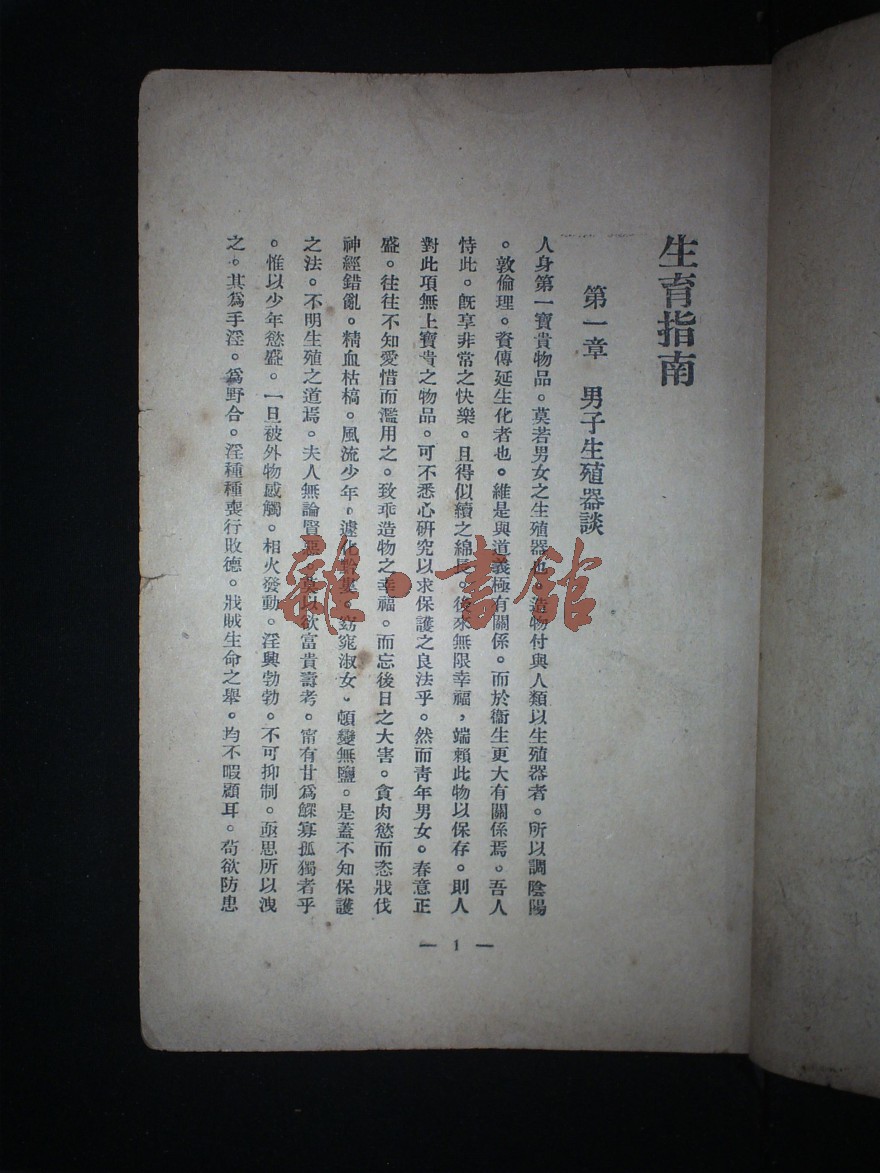 生育指南
第一章　男子生殖器談
人身第一寶貴物品。莫若男女之生殖器也。造物付與人類以生殖器者。所以調陰陽
。敦倫理。資傳延生化者也。維是與道義極有關係。而於衞生更大有關係焉。吾人
恃此。旣享非常之快樂。且得似續之綿長。後來無限幸福，端賴此物以保存。則人
對此項無上寶貴之物品。可不悉心硏究以求保護之良法乎。然而靑年男女。春意正
盛。往往不知愛惜而濫用之。致乖造物之幸福。而忘後日之大害。貪肉慾而恣戕伐
神經錯亂。精血枯槁。風流少年。遽化。窈窕淑女。頓變無鹽。是蓋不知保護
之法。不明生殖之道焉。夫人無論賢以欲富貴壽考。甯有甘爲鰥寡孤獨者乎
。惟以少年慾盛。一旦被外物感觸。相火發動。淫興勃勃。不可抑制。亟思所以洩
之。其爲手淫。爲野合。淫種種喪行敗德。戕賊生命之舉。均不暇顧耳。苟欲防患
— 1 —
雜·書館